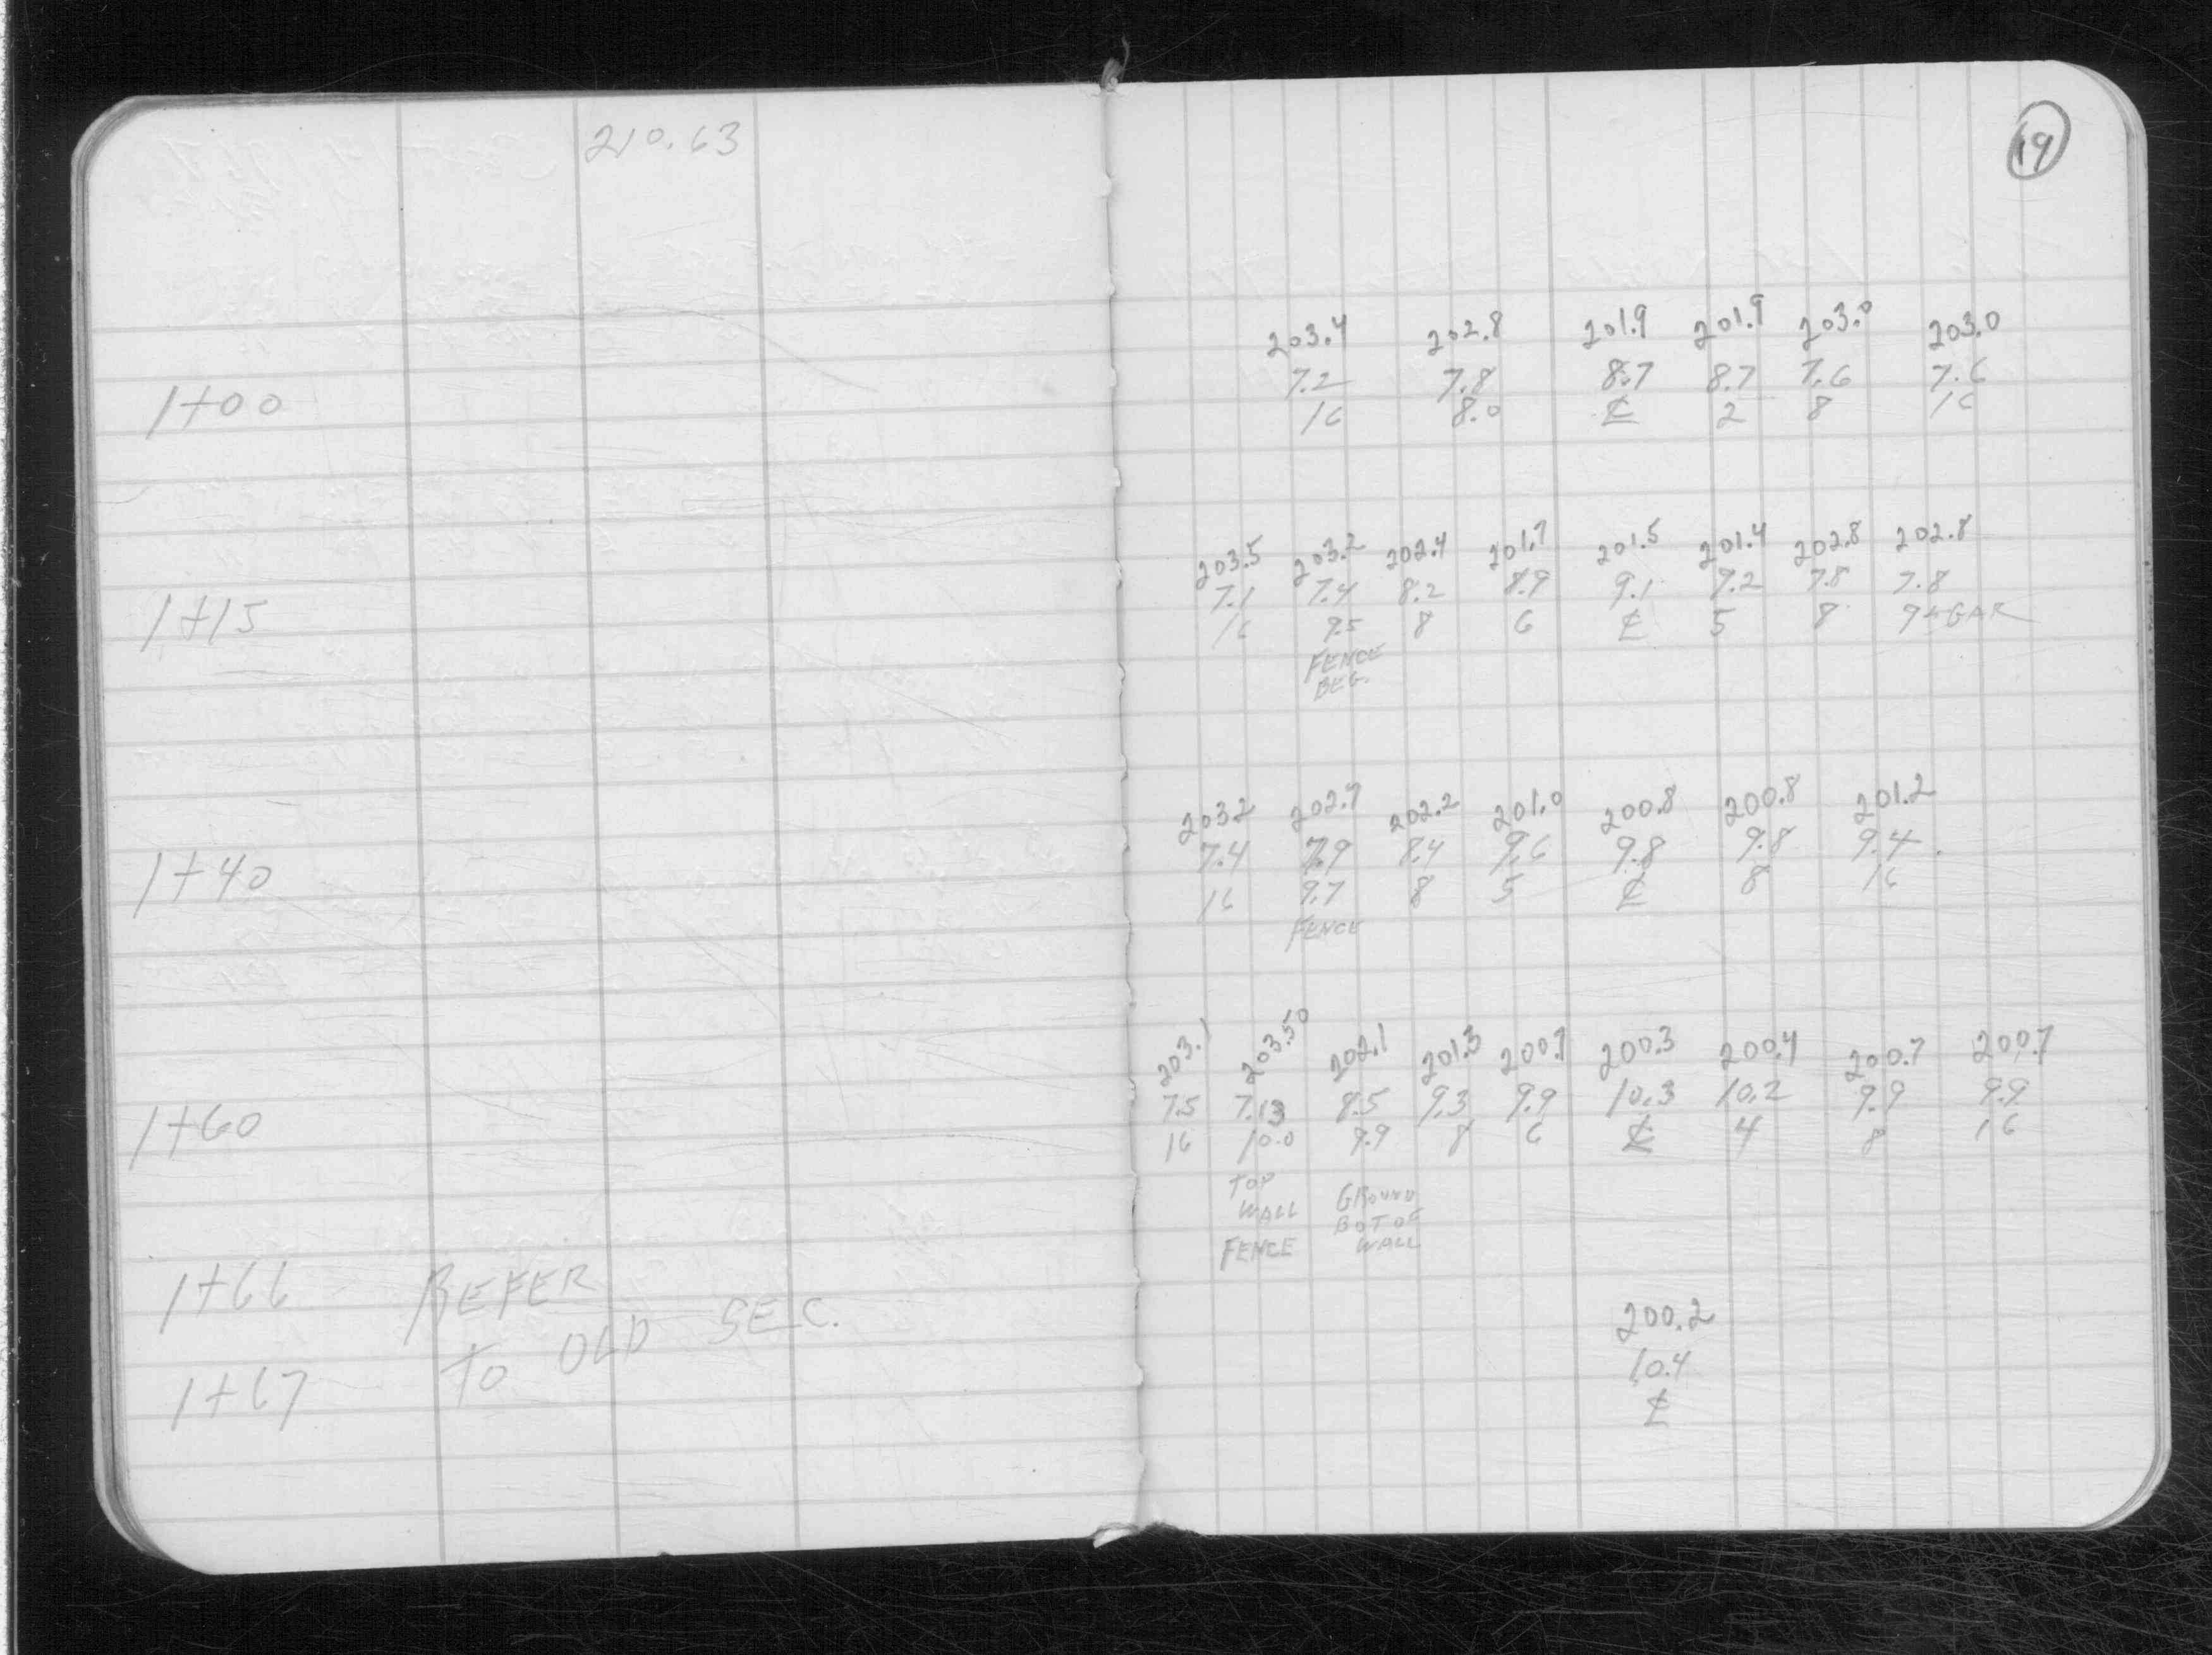 210.63
19
203.4 202.8 201.9 201.9 203.0 203.0
7.2 7.8 8.7 8.7 7.6 7.6
1+00 16 8.0 ℄ 2 8 16
203.5 203.2 202.4 201.7 201.5 201.4 202.8 202.8
7.1 7.4 8.2 8.9 9.1 9.2 7.8 7.8
1+15 16 9.5 8 6 ℄ 5 8 9± GAR
FENCE
BEG.
203.2 202.7 202.2 201.0 200.8 200.8 201.2
7.4 7.9 8.4 9.6 9.8 9.8 9.4
1+40 16 9.7 8 5 ℄ 8 16
FENCE
203.1 203.50 202.1 201.3 200.7 200.3 200.4 200.7 200.7
7.5 7.13 8.5 9.3 9.9 10.3 10.2 9.9 9.9
1+60 16 10.0 9.9 8 6 ℄ 4 8 16
TOP
WALL GROUND
BOT OF
FENCE WALL
1+66 REFER
TO OLD SEC.
200.2
10.4
1+67 ℄